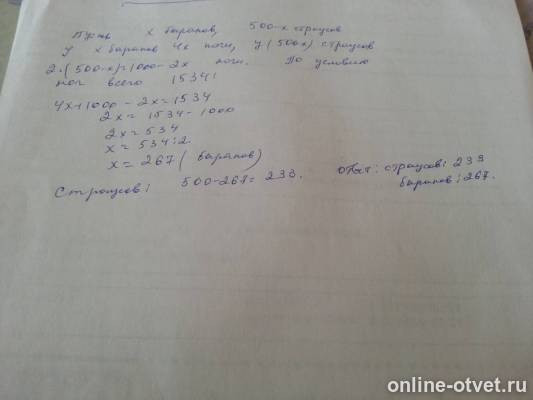 Пусть x баранов, 500-x страусов
У x баранов 4x ноги, у (500x) страусов
2·(500-x)=1000-2x ноги. По условию
ног всего 1534:
4x+1000-2x=1534
2x=1534-1000
2x=534
x=534:2.
x=267 (баранов)
Страусов: 500-267=233. Ответ: страусов: 233
баранов: 267.
online-otvet.ru